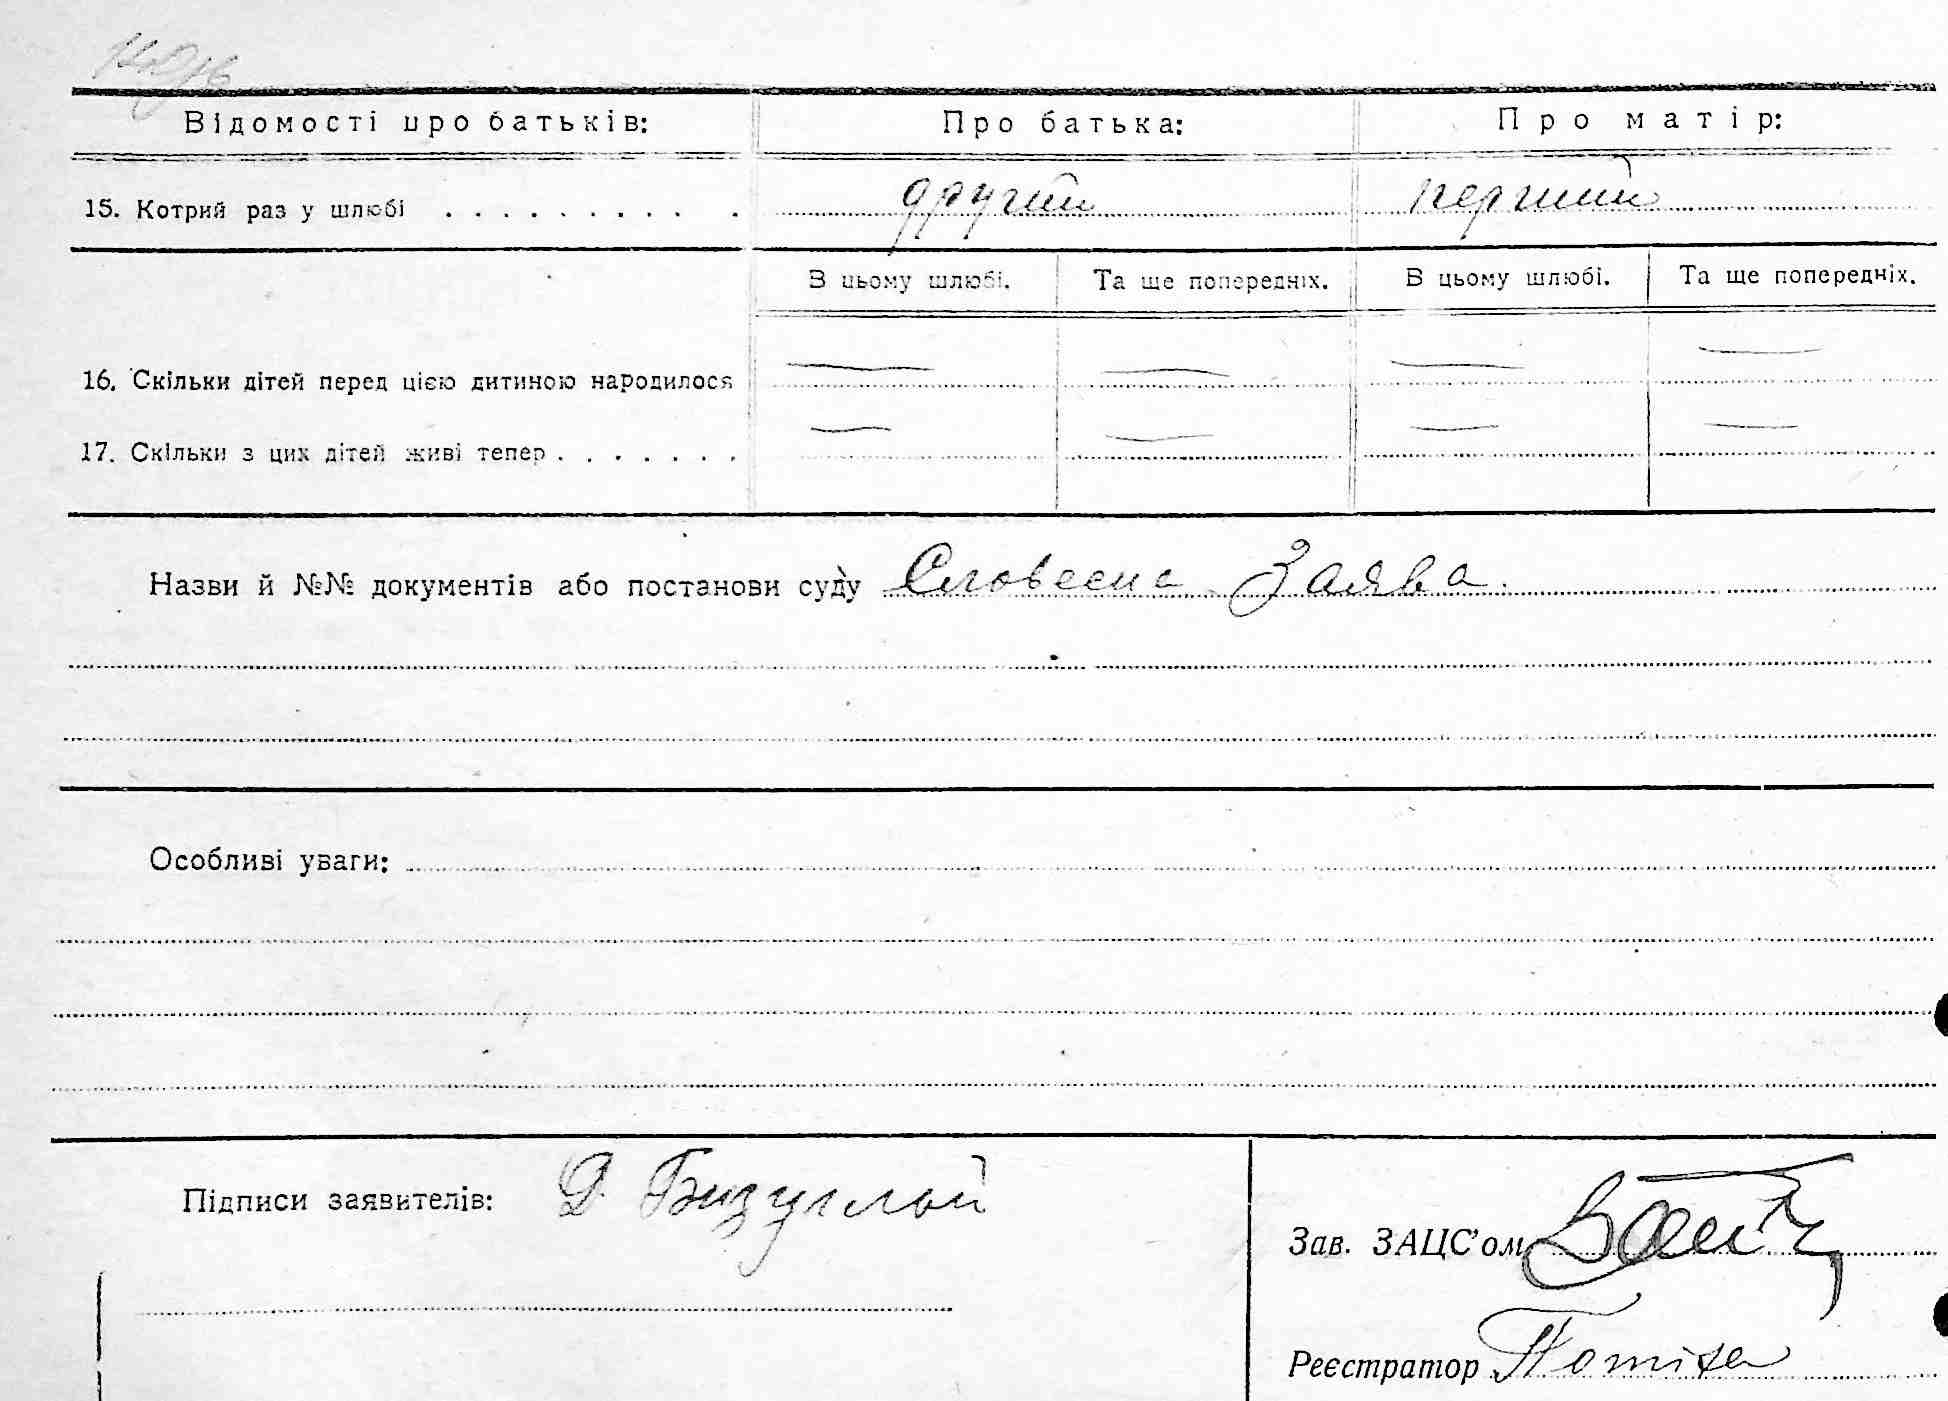 Відомості про батьків: Про батька: Про матір:
15. Котрий раз у шлюбі . . . . . . . . . . другий перший
В цьому шлюбі. Та ще попередніх. В цьому шлюбі. Та ще попередніх.
16. Скільки дітей перед цією дитиною народилося — — — —
17. Скільки з цих дітей живі тепер . . . . . . . — — — —
Назви й №№ документів або постанови суду Словесна Заява.
Особливі уваги:
Підписи заявителів: Д. Бизуглой
Зав. ЗАЦС'ом
Реєстратор